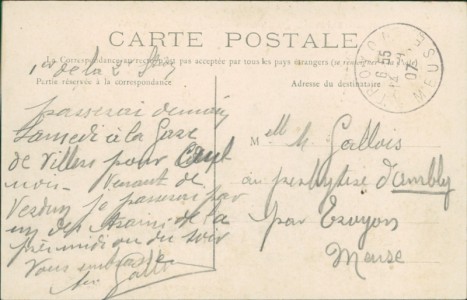 CARTE POSTALE
La Correspondance au recto n'est pas acceptée par tous les pays étrangers (se renseigner
Partie réservée à la correspondance
Adresse du destinataire
passerai demain
Samedi à la Gare
de Villers pour
Venant de
Verdun je passerai par
un des trains de la
ou du soir
Vous embrasse
Gallois
Melle M. Gallois
au presbytère d'Ambly
par Troyon
Meuse
MEUSE